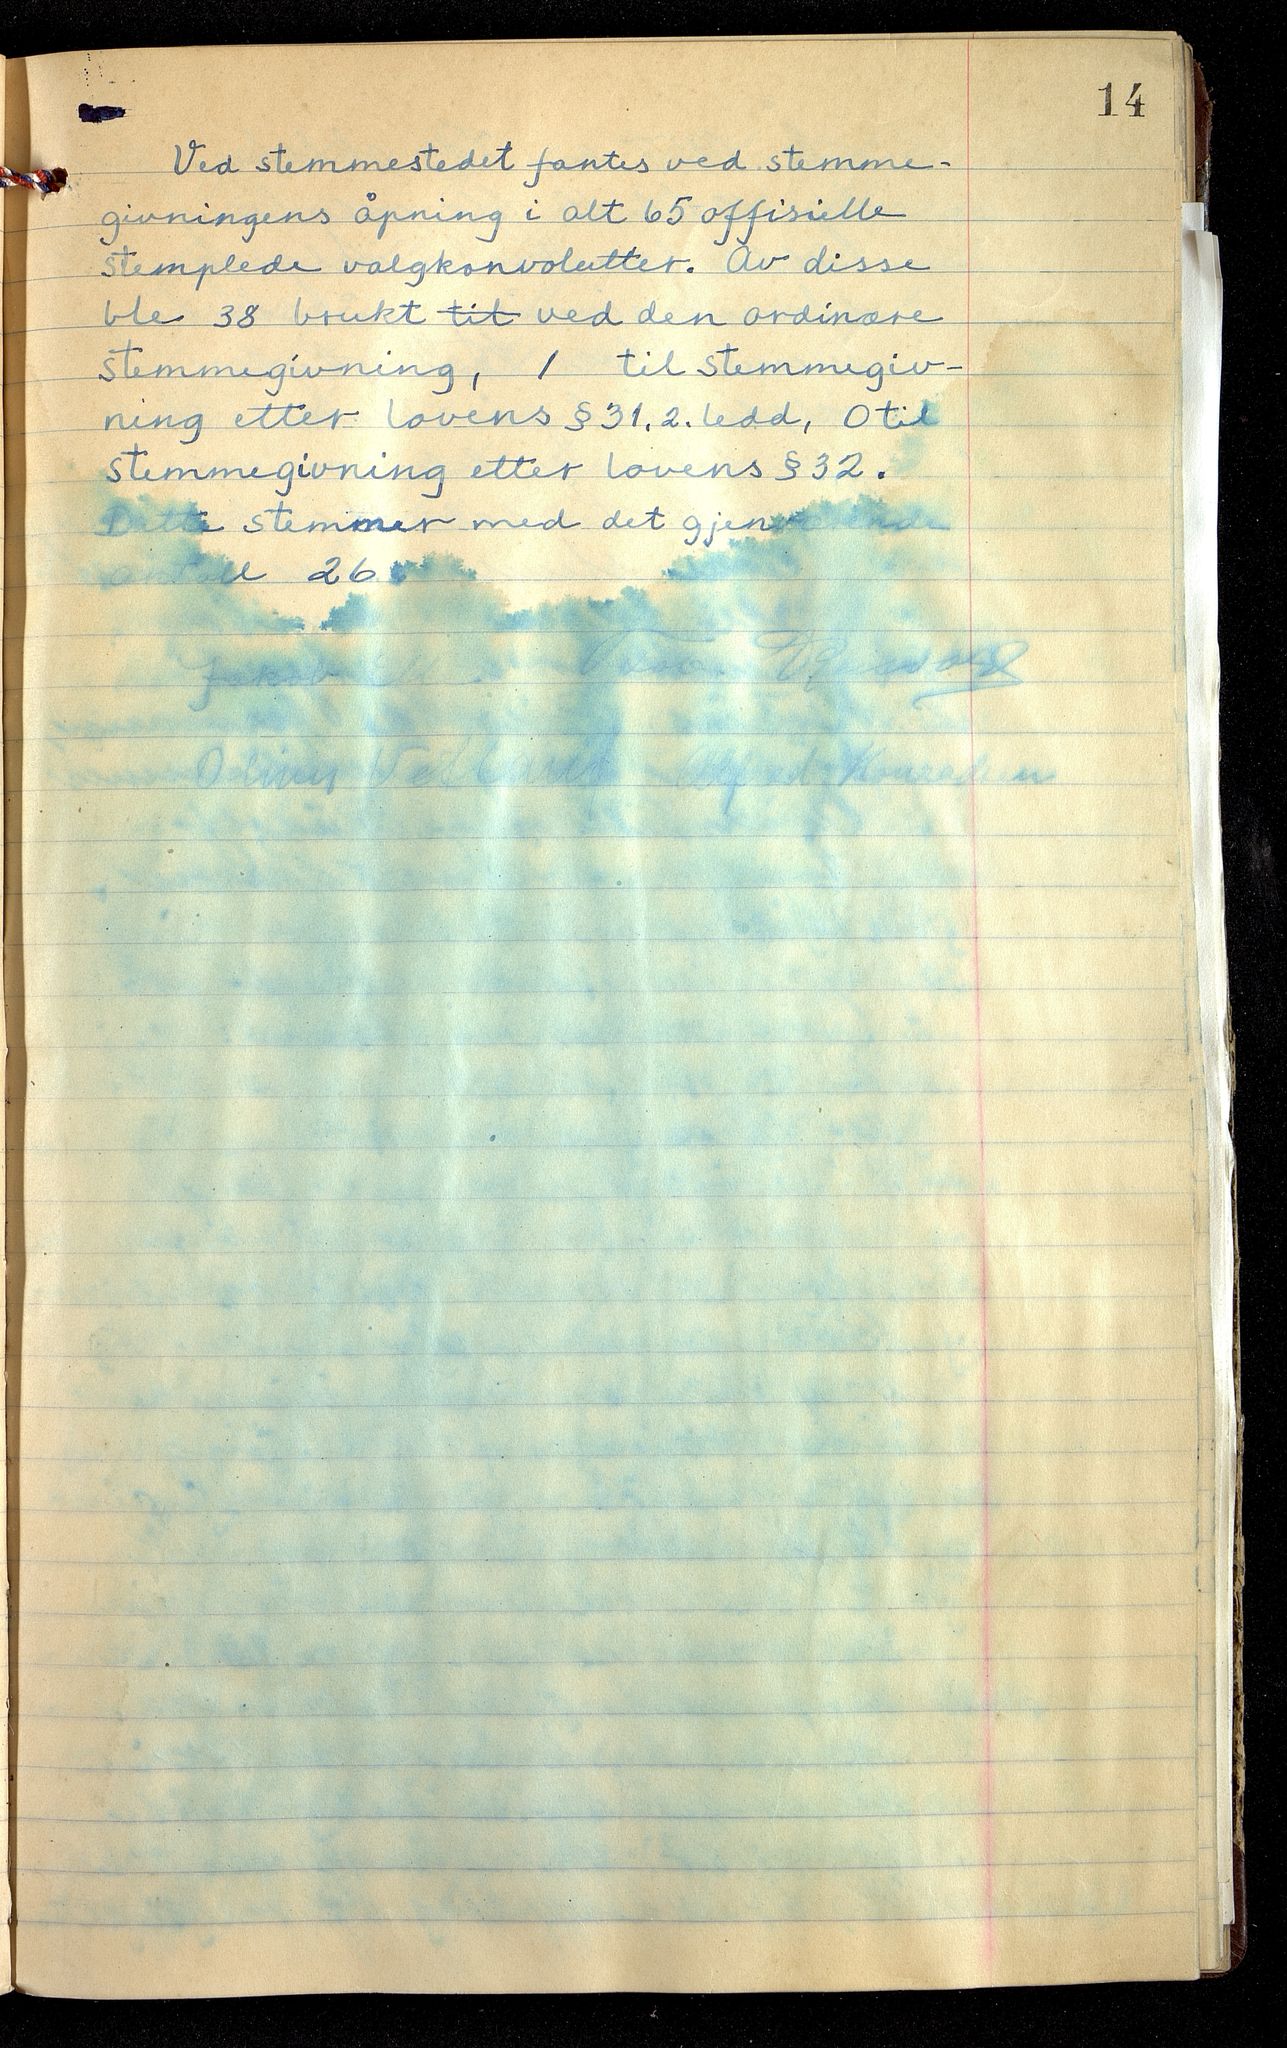 14
Ved stemmestedet fantes ved stemme-
givningens åpning i alt 65 offisielle
stemplede valgkonvolutter. Av disse
ble 38 brukt til ved den ordinære
stemmegivning, 1 til stemmegiv-
ning etter lovens § 31, 2. ledd, 0 til
stemmegivning etter lovens § 32.
Dette stemmer med det gjenværende
antall 26.
Jakob
Alfred Konradsen